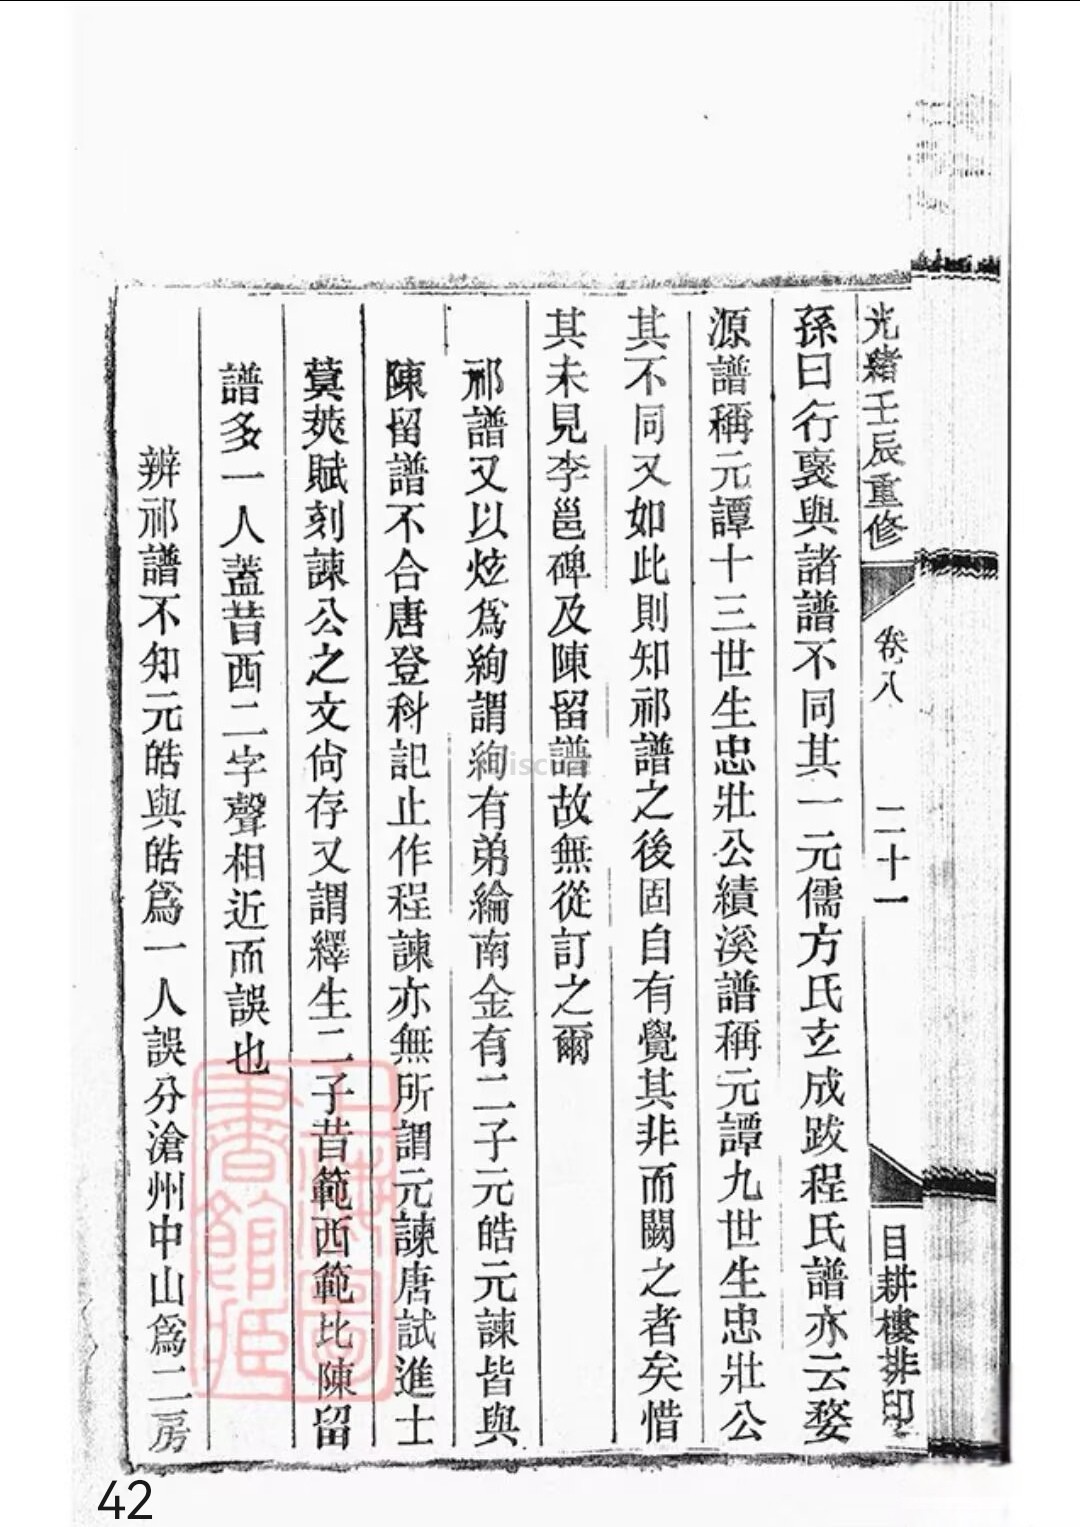 光緒壬辰重修 卷八 二十一 目耕樓排印
孫曰行褒與諸譜不同其一元儒方氏玄成跋程氏譜亦云婺
源譜稱元譚十三世生忠壯公績溪譜稱元譚九世生忠壯公
其不同又如此則知祁譜之後固自有覺其非而闕之者矣惜
其未見李邕碑及陳留譜故無從訂之爾
祁譜又以炫為絢謂絢有弟綸南金有二子元皓元諫皆與
陳留譜不合唐登科記止作程諫亦無所謂元諫唐試進士
蓂莢賦刻諫公之文尙存又謂繹生二子昔範西範比陳留
譜多一人蓋昔西二字聲相近而誤也
辨祁譜不知元皓與皓為一人誤分滄州中山為二房
上海圖書館藏
42